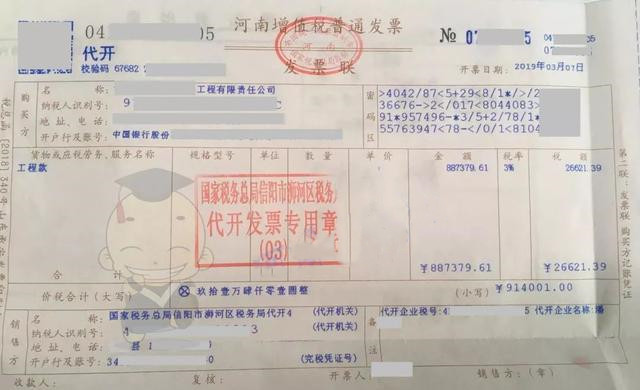 04 05
河南增值税普通发票
№ 07 5
代开
发票联
校验码 67682
开票日期: 2019年03月07日
购买方
名 称: 工程有限责任公司
纳税人识别号: 9 C
地址、电话:
开户行及账号: 中国银行股份
密码区
>4042/87<5+29<8/1*/>/2
36676->2</017<8044083>
91*957496-*3/5+2/78/1*
55763947<78-</0/1<8104
货物或应税劳务、服务名称 规格型号 单位 数量 单价 金额 税率 税额
工程款 887379.61 3% 26621.39
国家税务总局信阳市浉河区税务
代开发票专用章
(03)
合计 ¥887379.61 ¥26621.39
价税合计(大写) ⊗ 玖拾壹万肆仟零壹圆整 (小写) ¥914001.00
销售方
名 称: 国家税务总局信阳市浉河区税务局代开4 (代开机关)
纳税人识别号: 4 3 (代开机关)
地址、电话: 县 1
开户行及账号: 34 (完税凭证号)
备注
代开企业税号: 5 代开企业名称: 潘
收款人: 复核: 开票人: 销售方:(章)
第二联:发票联 购买方记账凭证